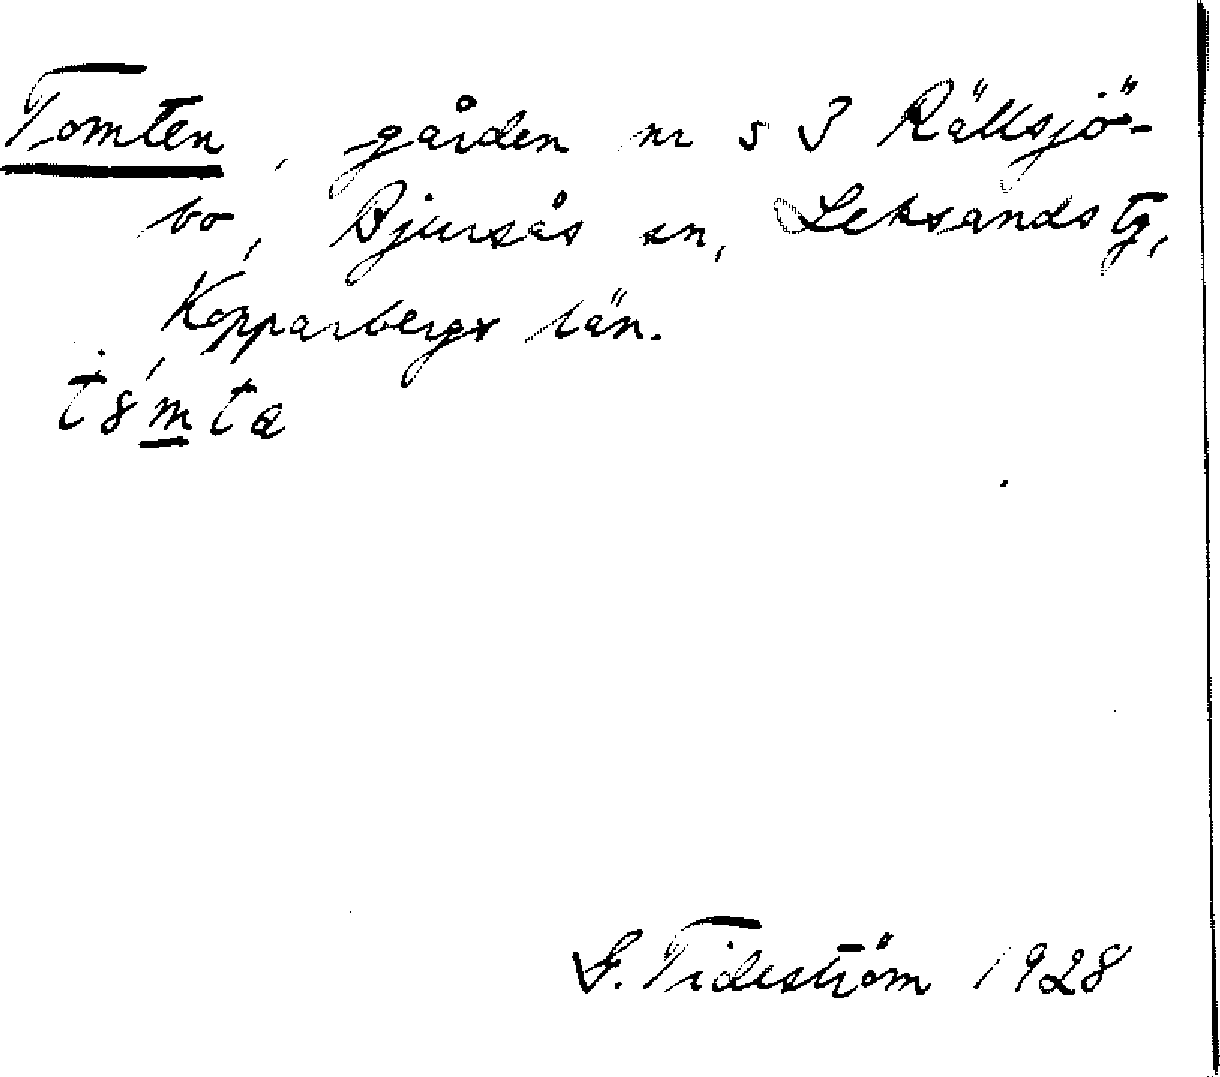 Tomten, gården nr 5 I Rällsjö-
bo, Bjursås sn, Leksands tg,
Kopparbergs län.
t8mta
G. Tideström 1928